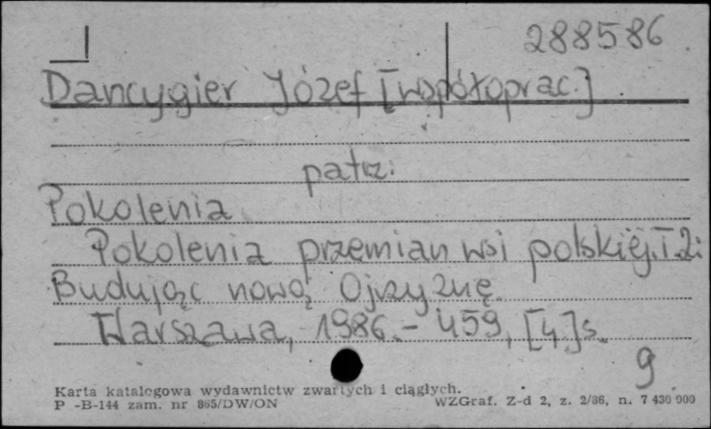 288586
Dancygier Józef [współoprac.]
patrz:
Pokolenia
Pokolenia przemian wsi polskiej. T. 2:
Budując nową Ojczyznę.
Warszawa, 1986. - 459, [4] s.
9
Karta katalogowa wydawnictw zwartych i ciągłych.
P -B-144 zam. nr 865/DW/ON WZGraf. Z-d 2, z. 2/86, n. 7 430 000